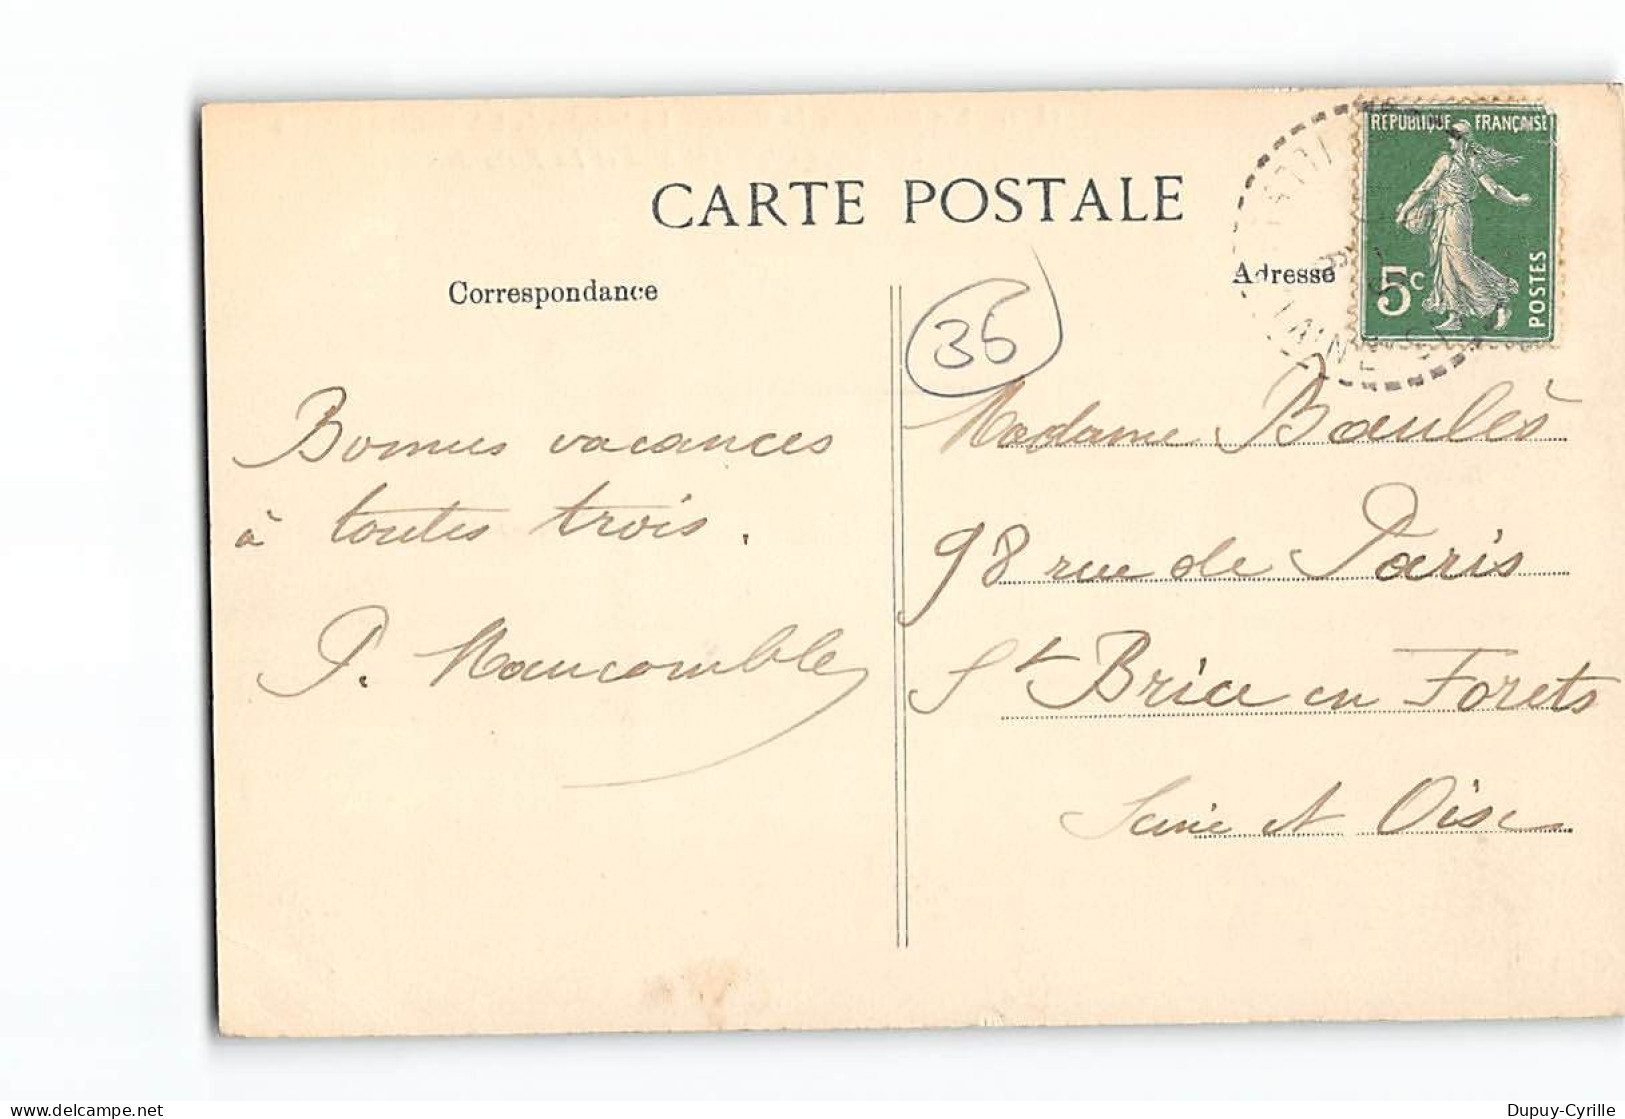 CARTE POSTALE
Correspondance
Adresse
RÉPUBLIQUE FRANÇAISE
5c
POSTES
36
Bonnes vacances
à toutes trois.
P. Maucomble
Madame Baulès
98 rue de Paris
St Brice en Forets
Seine et Oise
Dupuy-Cyrille